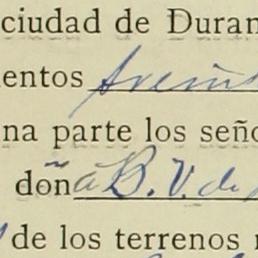 ciudad de Duran
entos
na parte los seño
doña B. V. de
de los terrenos